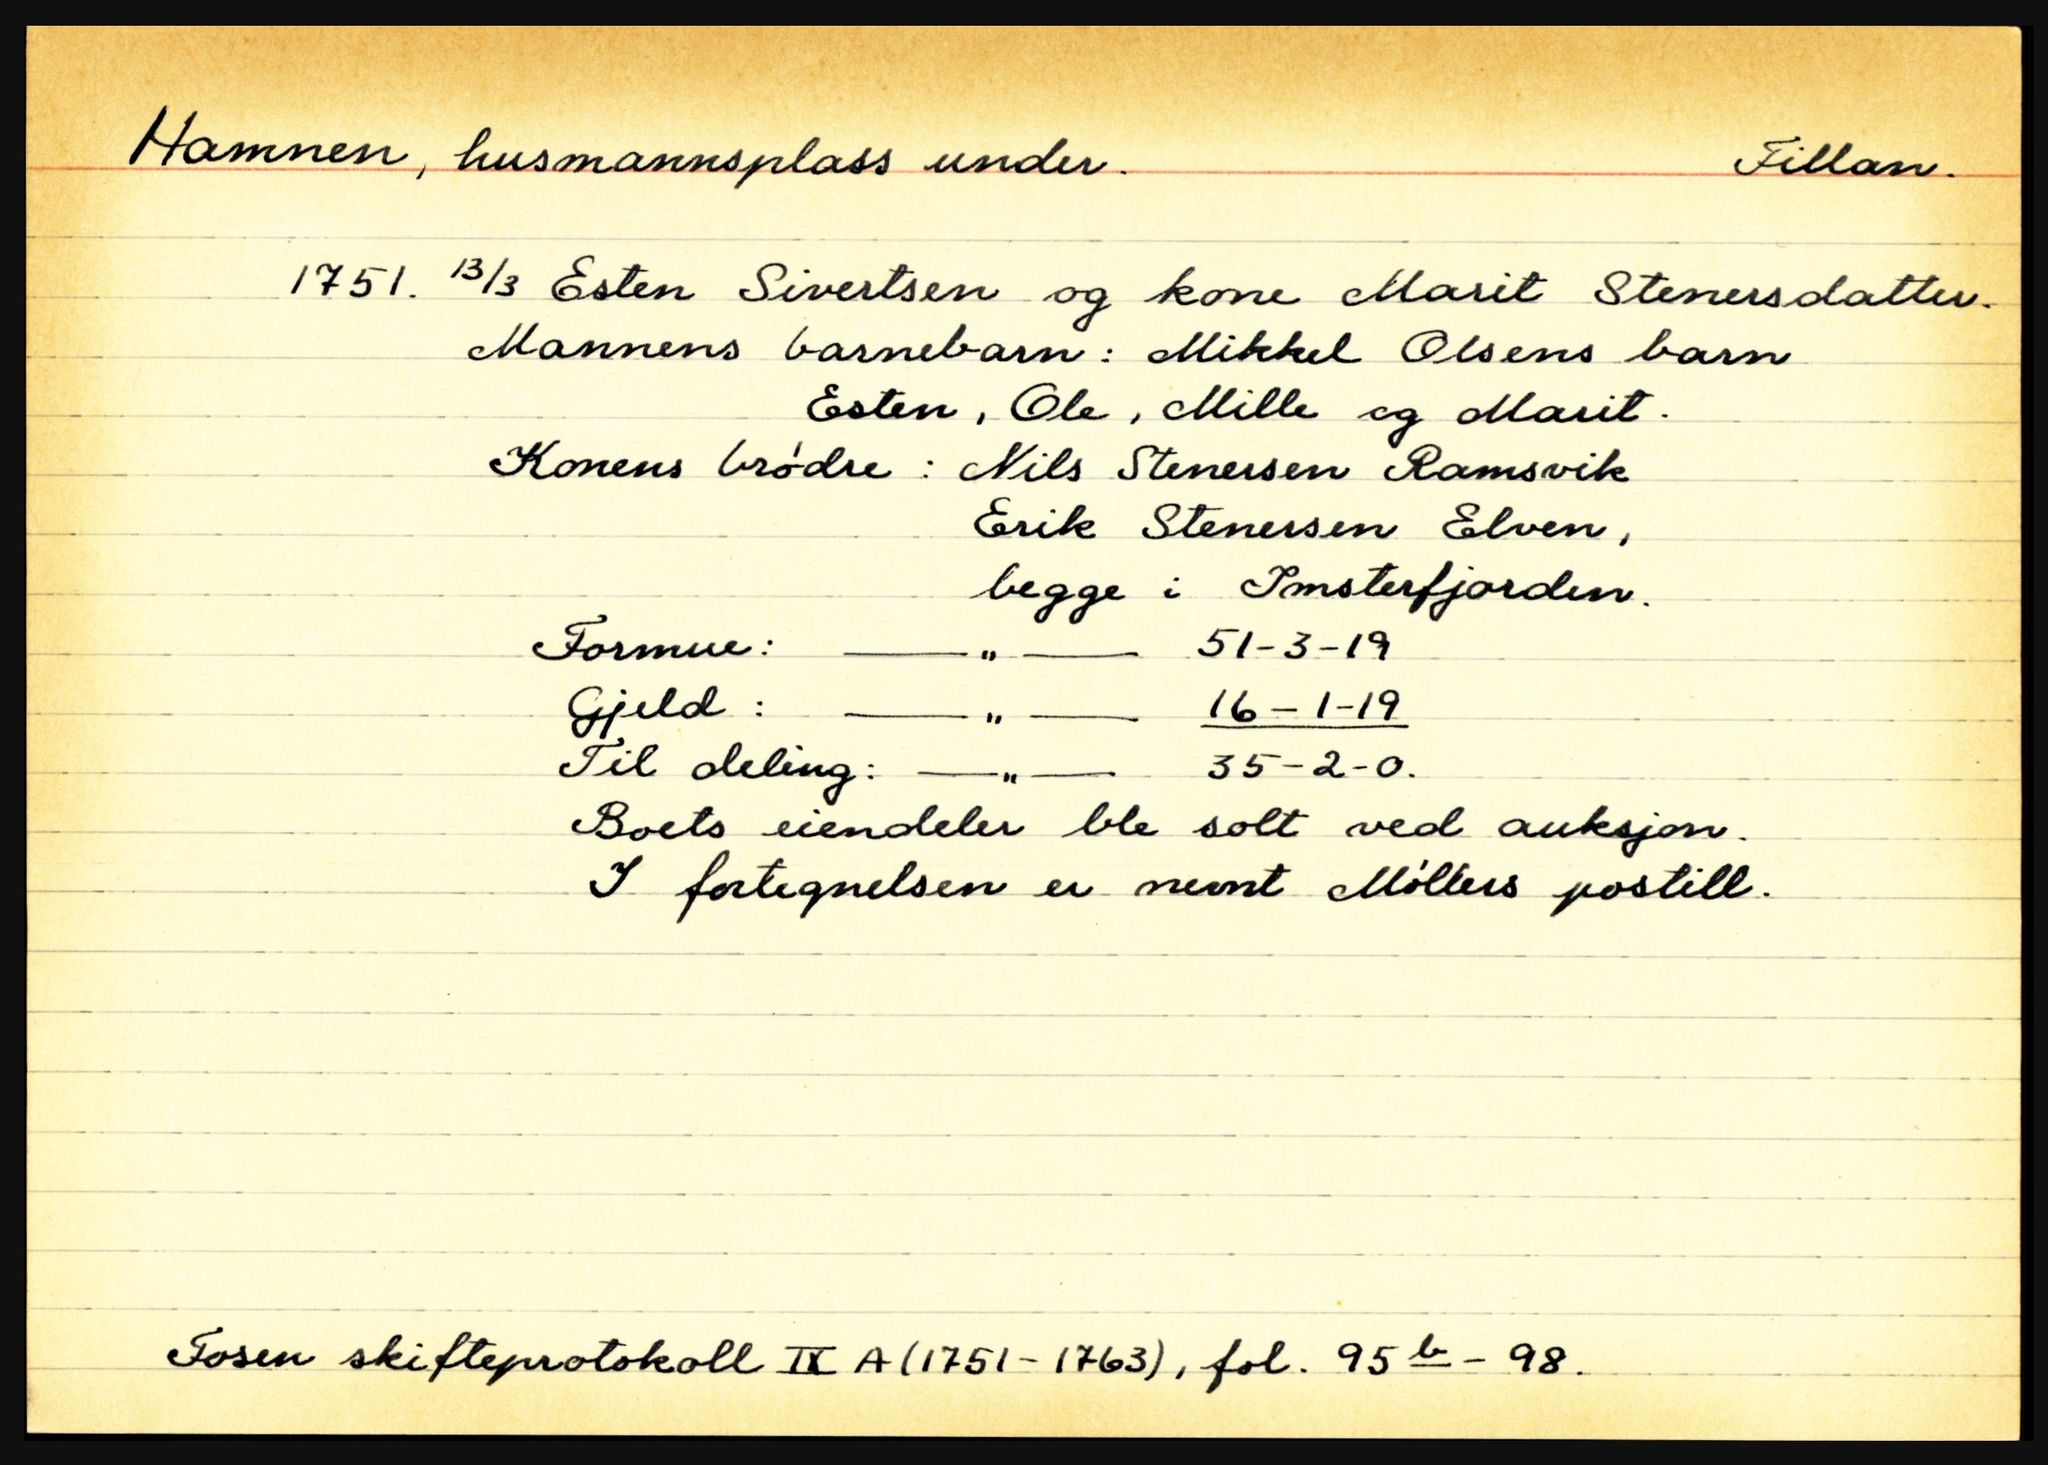 Hamnen, husmannsplass under. Fillan.
1751. 13/3 Esten Sivertsen og kone Marit Stenersdatter.
Mannens barnebarn: Mikkel Olsens barn
Esten, Ole, Mille og Marit.
Konens brödre: Nils Stenersen Ramsvik
Erik Stenersen Elven,
begge i Imsterfjorden.
Formue: —— " —— 51-3-19
Gjeld: —— " —— 16-1-19
Til deling: —— " —— 35-2-0.
Boets eiendeler ble solt ved auksjon.
I fortegnelsen er nemnt Möllers postill.
Fosen skifteprotokoll IX A (1751-1763), fol. 95 b - 98.